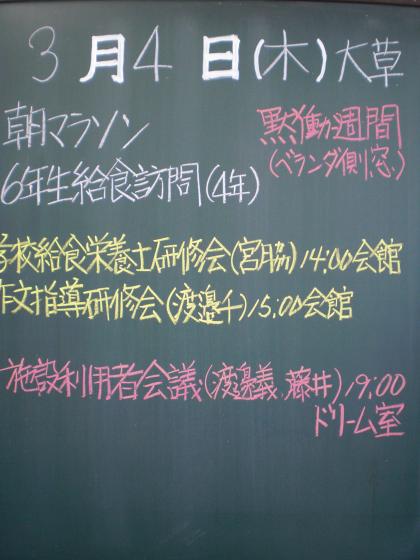 3月4日(木)大草
朝マラソン
黙働週間
(ベランダ側、窓)
6年生給食訪問(4年)
学校給食栄養士研修会(宮脇)14:00会館
作文指導研修会(渡邉千)15:00会館
施設利用者会議(渡邉義、藤井)19:00
ドリーム室